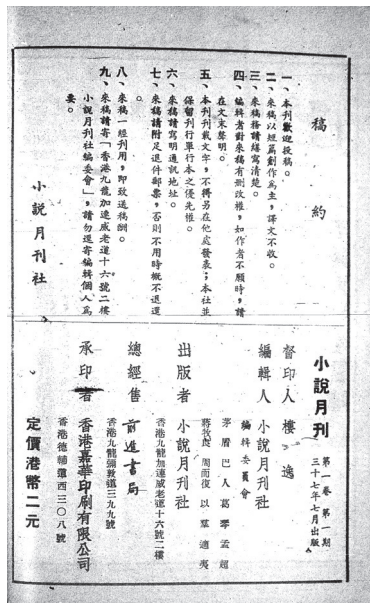 稿約
一、本刊歡迎投稿。
二、來稿以短篇創作為主，譯文不收。
三、來稿務請繕寫清楚。
四、編輯者對來稿有刪改權，如作者不願時，請
在文末聲明。
五、本刊刊載文字，不得另在他處發表；本社並
保留刊行單行本之優先權。
六、來稿請寫明通訊地址。
七、來稿請附足退件郵票，否則不用時概不退還
。
八、來稿一經刊用，即致送稿酬。
九、來稿請寄「香港九龍加連威老道十六號二樓
小說月刊社編委會」，請勿逕寄編輯個人為
要。
小說月刊社
小說月刊 第一卷 第一期
三十七年七月出版
督印人 樓適
編輯人 小說月刊社
編輯委員會
茅盾 巴人 葛琴 孟超
蔣牧良 周而復 以羣 適夷
出版者 小說月刊社
香港九龍加連威老道十六號二樓
總經售 前進書局
香港九龍彌敦道三九九號
承印者 香港嘉華印刷有限公司
香港德輔道西三〇八號
定價港幣二元